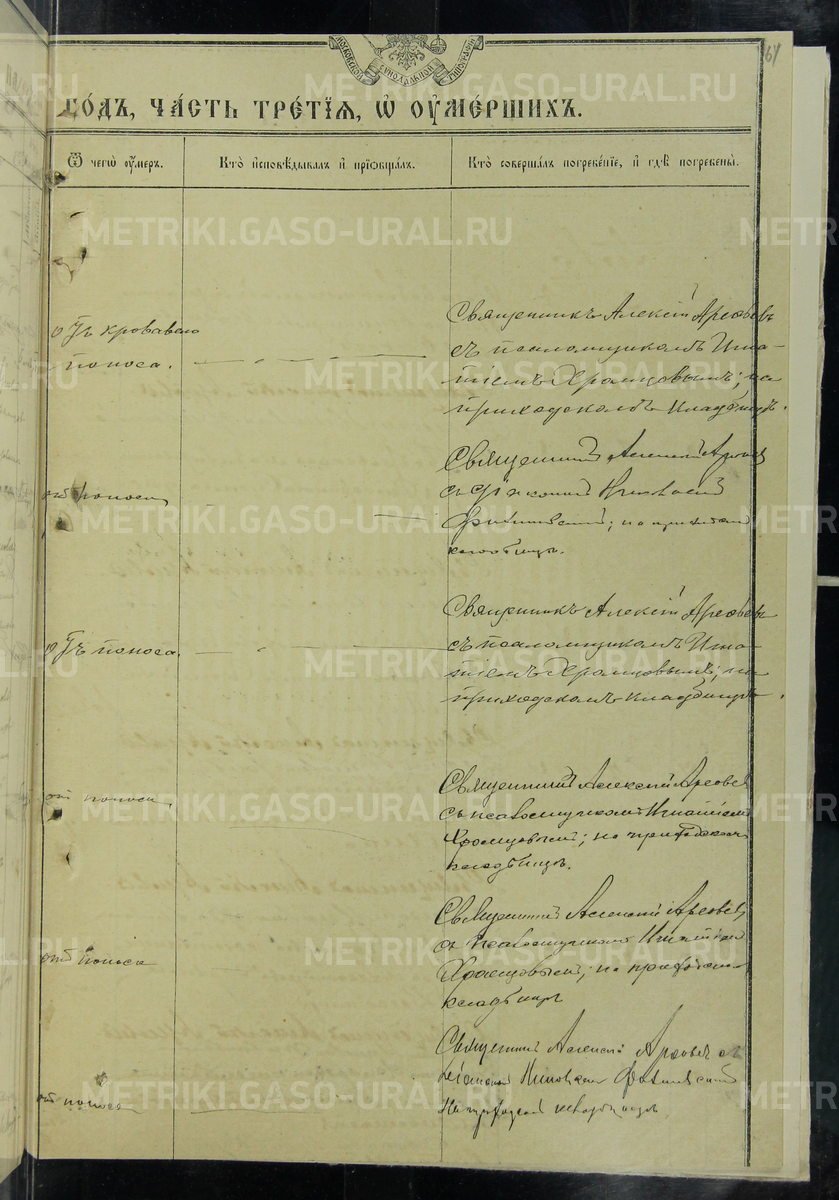 МОСКОВСКОЙ СѴНОДАЛЬНОЙ ТИПОГРАФІИ
61
ГО́ДЪ, ЧА́СТЬ ТРЕ́ТІѦ, Ѡ҆ ОУ҆МЕ́РШИХЪ.
Ѿ чегѡ̀ оу҆́меръ.
Кто̀ и҆сповѣ́дывалъ и҆ прїѡбща́лъ.
Кто̀ соверша́лъ погребе́нїе, и҆ гдѣ̀ погребены̀.
отъ кроваваго
поноса.
Священникъ Алексій Арефьевъ
съ псаломщикомъ Игна-
тіемъ Храмцовымъ; на
приходскомъ кладбищѣ.
отъ поноса
Священникъ Алексій
съ діакономъ Николаемъ
на приходском
кладбищѣ.
отъ поноса.
Священникъ Алексій Арефьевъ
съ псаломщикомъ Игна-
тіемъ Храмцовымъ; на
приходскомъ кладбищѣ.
отъ поноса
Священникъ Алексій Арефьев
съ псаломщикомъ Игнатіемъ
Храмцовымъ; на приходском
кладбищѣ.
отъ поноса
Священникъ Алексій Арефьев
съ псаломщикомъ Игнатіем
Храмцовымъ; на приходском
кладбищѣ
отъ поноса
Священникъ Алексій Арефьевъ съ
діакономъ Николаемъ
на приходском кладбищѣ.
METRIKI.GASO-URAL.RU